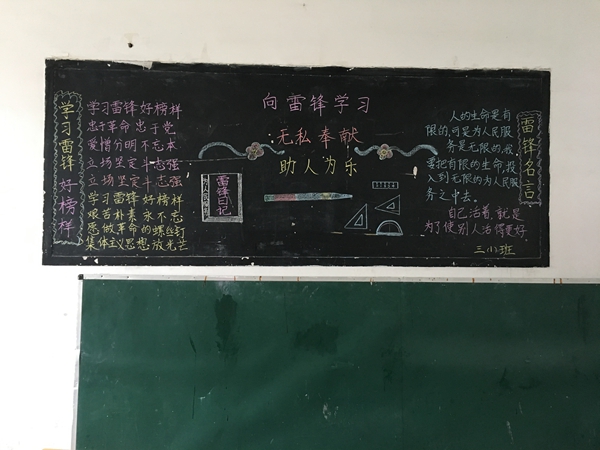 学习雷锋好榜样
学习雷锋 好榜样
忠于革命 忠于党
爱憎分明 不忘本
立场坚定 斗志强
立场坚定 斗志强
学习雷锋 好榜样
艰苦朴素 永不忘
愿做革命的螺丝钉
集体主义思想放光芒
向雷锋学习
无私奉献
助人为乐
雷锋日记
人的生命是有
限的,可是为人民服
务是无限的,我
要把有限的生命,投
入到无限的为人民服
务之中去。
自己活着,就是
为了使别人活得更好.
三(1)班
雷锋名言